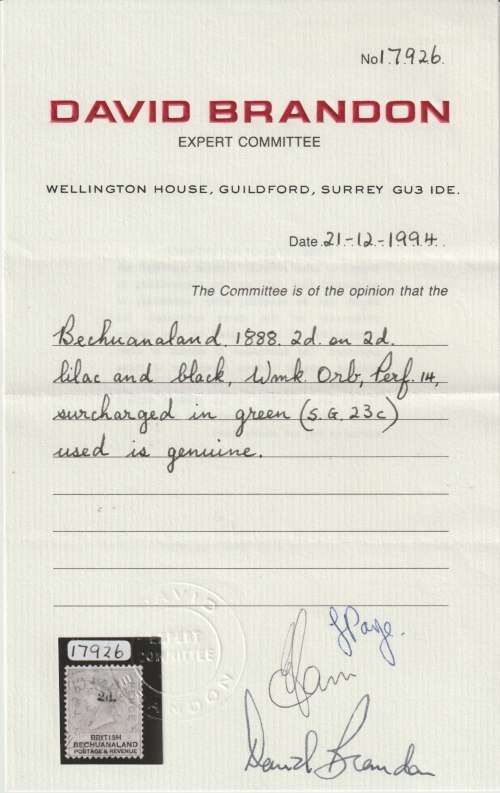 No 17926.
DAVID BRANDON
EXPERT COMMITTEE
WELLINGTON HOUSE, GUILDFORD, SURREY GU3 IDE.
Date 21-12-1994.
The Committee is of the opinion that the
Bechuanaland, 1888. 2d. on 2d.
lilac and black, Wmk Orb, Perf. 14,
surcharged in green (S.G. 23c)
used is genuine.
DAVID
EXPERT
COMMITTEE
BRANDON
17926
2d.
BRITISH
BECHUANALAND
POSTAGE & REVENUE
David Brandon